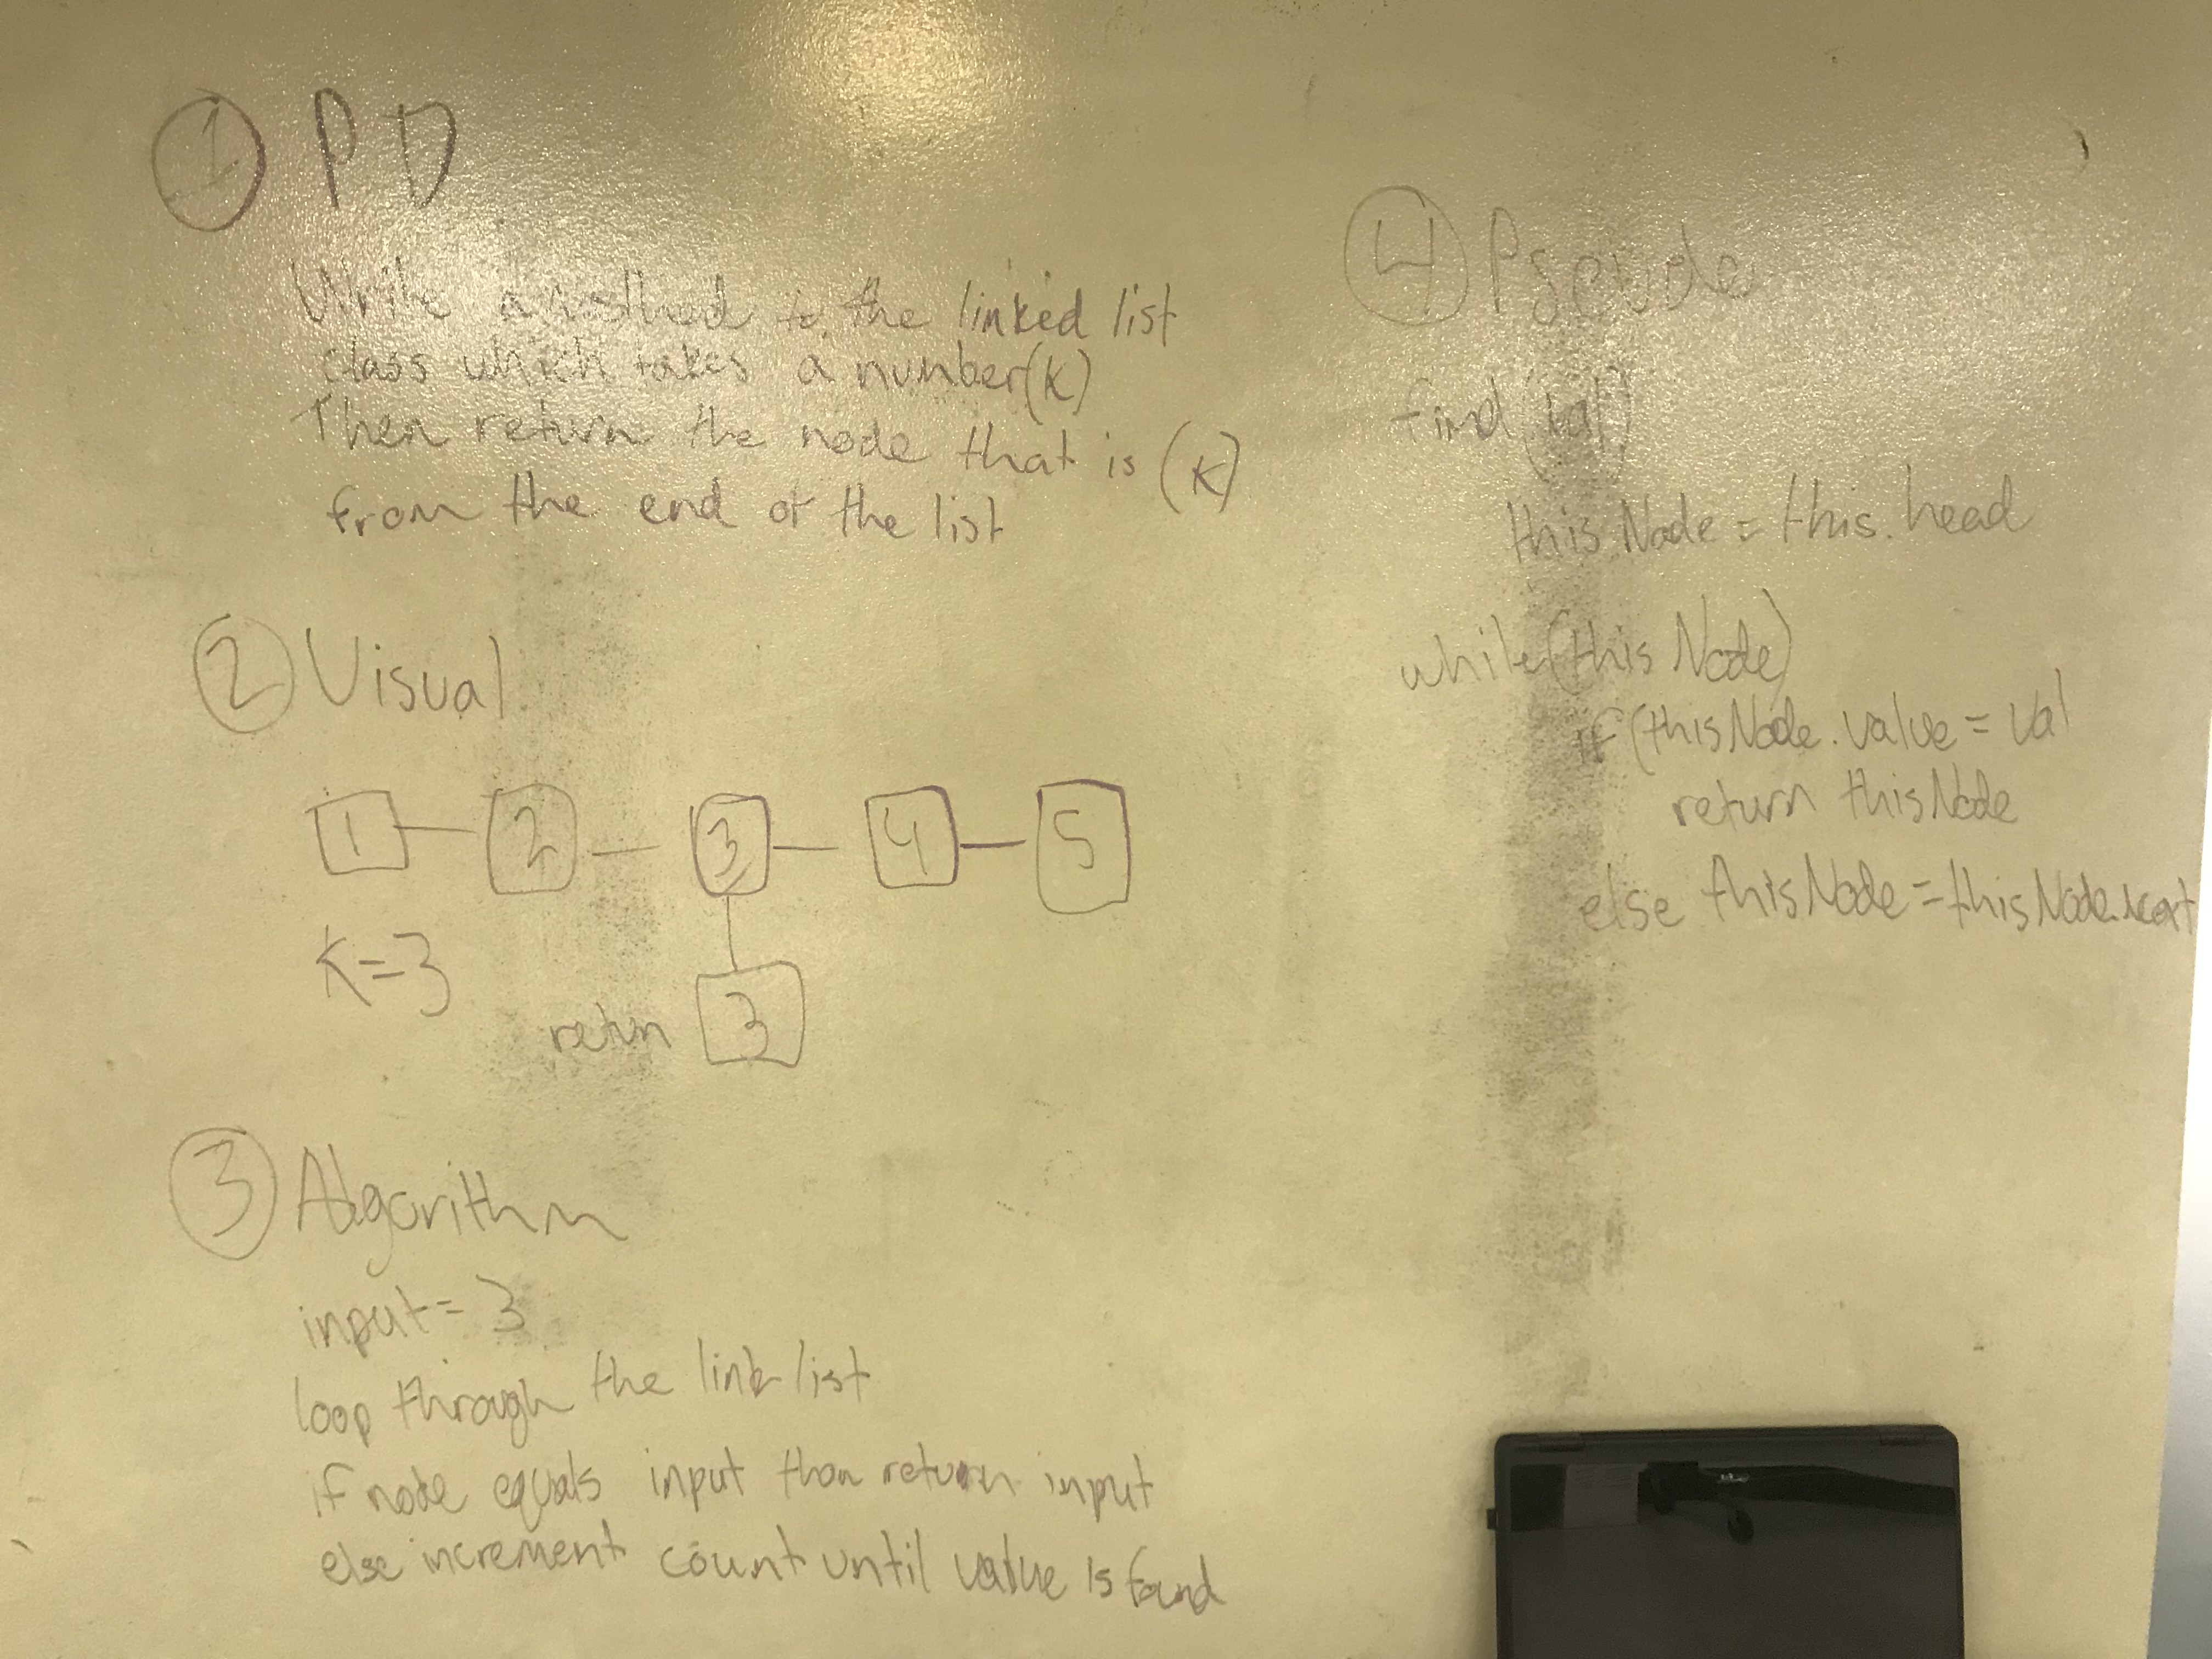 ① PD
Write a method to the linked list
class which takes a number(K)
Then return the node that is (K)
from the end of the list
② Visual
1 2 3 4 5
K=3
return 3
③ Algorithm
input = 3
loop through the link list
if node equals input than return input
else increment count until value is found
④ Pseude
find (val)
this.Node = this.head
while(this Node)
if (thisNode.value = val
return thisNode
else thisNode = thisNode.next